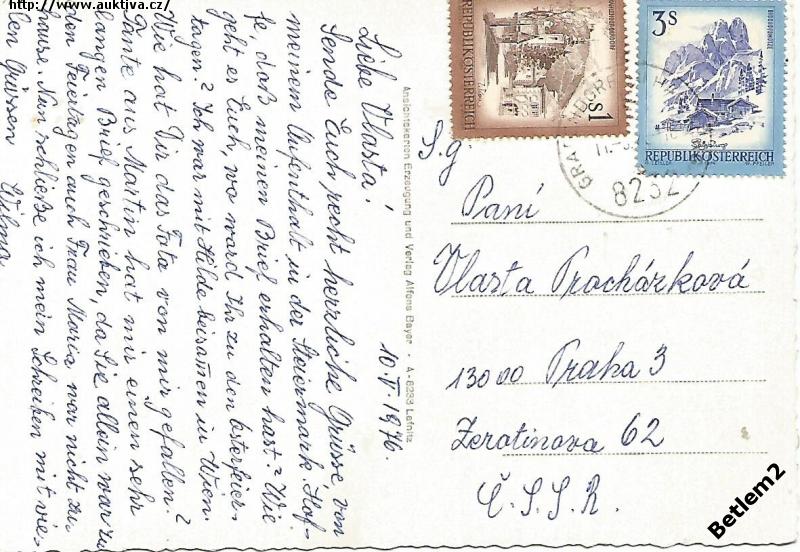 http://www.auktiva.cz/
10.V.1976.
Liebe Vlasta!
Sende Euch recht herzliche Grüsse von
meinem Aufenthalt in der Steiermark. Hof-
fe, daß meinen Brief erhalten hast? Wie
geht es Euch, wo ward Ihr zu den Osterfeier-
tagen? Ich war mit Hilde beisammen in Wien.
Wie hat Dir das Foto von mir gefallen?
Tante aus Martin hat mir einen sehr
langen Brief geschrieben, da Sie allein war zu
den Feiertagen auch Frau Maria war nicht zu
hause. Nun schließe ich mein Schreiben mit vie-
len Grüssen Wilma
Ansichtskarten Erzeugung und Verlag Alfons Bayer · A-8233 Lafnitz
REPUBLIK ÖSTERREICH
S1
3S
REPUBLIK ÖSTERREICH
8232
S.g.
Paní
Vlasta Procházková
13000 Praha 3
Žerotínova 62
Č.S.S.R.
Betlem2